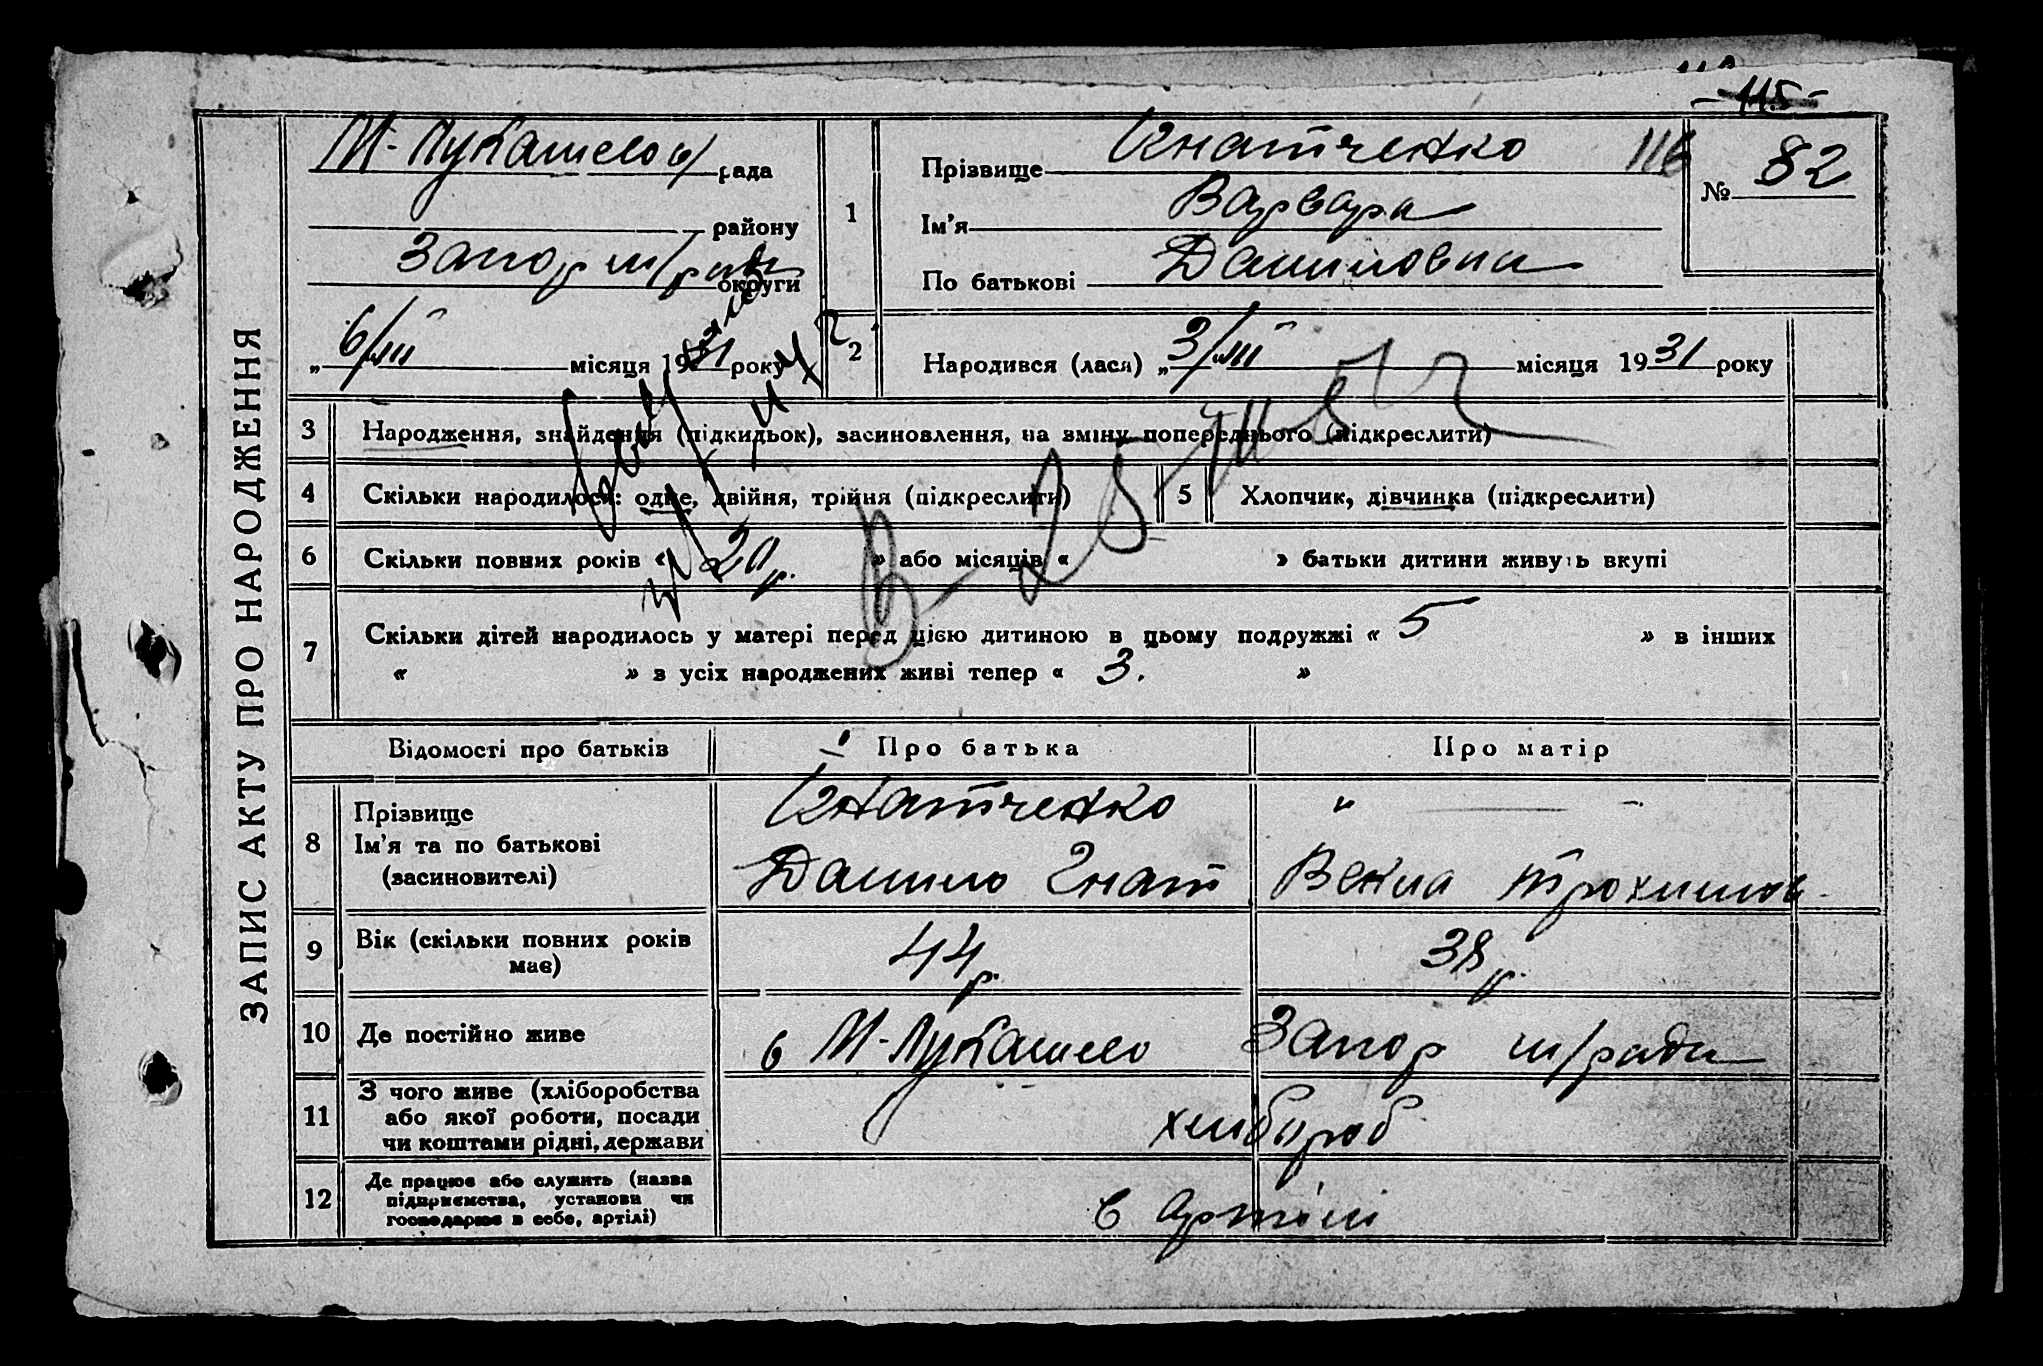 - 115 -
116
М-Лукашево рада
району
Запор м/ради округи
„6/III місяця 1931 року
1
Прізвище Игнатченко
Ім'я Варвара
По батькові Даниловна
№ 82
2
Народився (лася) „3/III місяця 1931 року
ЗАПИС АКТУ ПРО НАРОДЖЕННЯ
3 Народження, знайдення (підкидьок), засиновлення, на зміну попереднього (підкреслити)
4 Скільки народилося: одне, двійня, трійня (підкреслити)
5 Хлопчик, дівчинка (підкреслити)
6 Скільки повних років « 20 р. » або місяців « » батьки дитини живуть вкупі
7 Скільки дітей народилось у матері перед цією дитиною в цьому подружжі « 5 » в інших
« » з усіх народжених живі тепер « 3. »
Відомості про батьків Про батька Про матір
8 Прізвище
Ім'я та по батькові
(засиновителі)
Игнатченко
Данило Гнат
" —
Трохимов
9 Вік (скільки повних років
має)
44 р.
38 р.
10 Де постійно живе
в М-Лукашево Запор м/ради
11 З чого живе (хліборобства
або якої роботи, посади
чи коштами рідні, держави
хлибороб
12 Де працює або служить (назва
підприємства, установи чи
господарює в себе, артілі)
в артілі